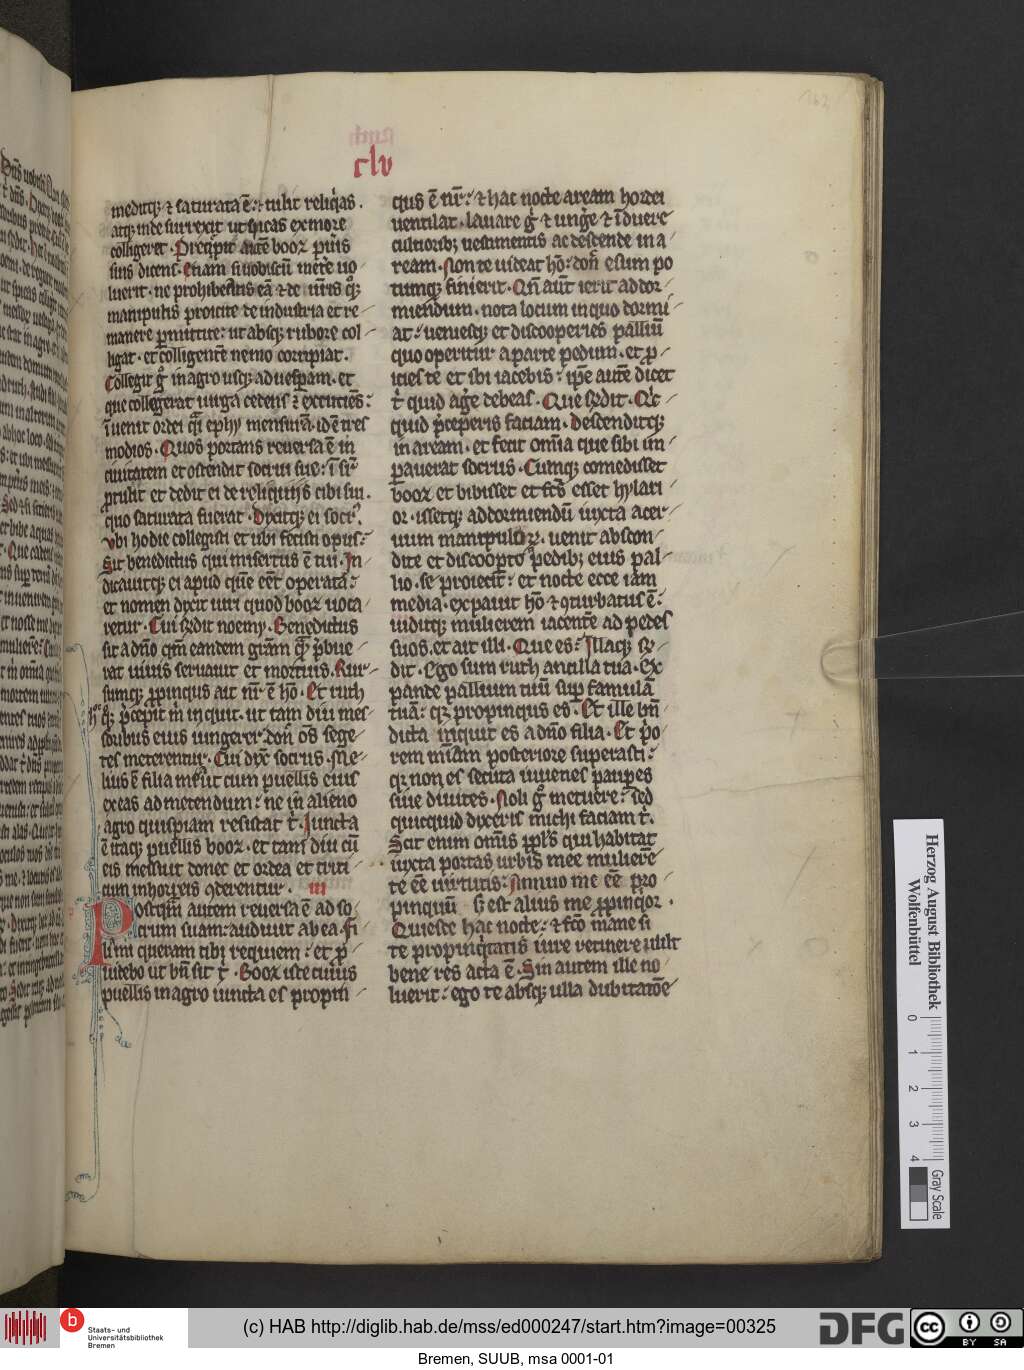 clv
meditq; ⁊ saturata ē. ⁊ tulit reliq̇as.
atq; inde surrexit ut spicas ex more
colligeret. Precipit autē booz pu̇is
suis dicens. Etiam si uobiscū metˀe uo
luerit. ne prohibeatis eā ⁊ de ur̄is q̄q;
manipulis proicite de industria et re
manere pmittite: ut absq; rubore col
ligat. et colligentē nemo corripiat.
Collegit gͦ in agro usq; ad uesp̄am. et
que collegerat uirga cedens ⁊ excutiēs:
īuenit ordei qͣi ephy mensurā. id ē tres
modios. Quos portans reuersa ē in
ciuitatem et ostendit socrui sue: īsuꝑ
ꝓtulit et dedit ei de reliquiis cibi sui.
quo saturata fuerat. Dixitq; ei socrꝰ.
Vbi hodie collegisti et ubi fecisti opus:
Sit benedictus qui misertus ē tui. In
dicauitq; ei apud quē eēt operata:
et nomen dixit uiri quod booz uoca
retur. Cui rͦndit noemy. Benedictus
sit a dn̄o qm̄ eandem gr̄am qͣ p̄bue
rat uiuis seruauit et mortuis. Rur
sumq; ꝓpinqus ait nr̄ ē hō. Et ruth
hͦ qͦq; p̄cepit m̄ inquit. ut tam diu mes
soribus eius iungerer don̄ om̄s sege
tes meterentur. Cui dix̄ socrus. Me
lius ē filia mi ut cum puellis eius
exeas ad metendum: ne in alieno
agro quispiam resistat t̄. Iuncta
ē itaq; puellis booz. et tam diu cū
eis messuit donec et ordea et triti
cum in horreis ꝯderentur. III
Postqm̄ autem reuersa ē ad so
crum suam: audiuit ab ea. Fi
lia mi queram tibi requiem: et ꝓ
uidebo ut bn̄ sit t̄. Booz iste cuiꝰ
puellis in agro iuncta es propin
qus ē nr̄: ⁊ hac nocte aream hordei
uentilat. lauare gͦ ⁊ unge ⁊ īduere
cultiorib; uestimentis ac descende in a
ream. Non te uideat hō: don̄ esum po
tumq; finierit. Qn̄ aūt ierit ad dor
miendum. nota locum in quo dormi
at: ueniesq; et discooperies palliū
quo operitur a parte pedum. et ꝓ
icies te et ibi iacebis: ip̄e autē dicet
t̄ quid age debeas. Que rͦndit. Q̇c
quid p̄ceperis faciam. Descenditq;
in aream. et fecit om̄ia que sibi im
pauerat socrus. Cumq; comedisset
booz et bibisset et fc̄s esset hylari
or. issetq; ad dormiendū iuxta acer
uum manipuloꝝ. uenit abscon
dite et discoopto pedib; eius pal
lio. se proiecit: et nocte ecce iam
media. expauit hō ⁊ ꝯturbatus ē:
uiditq; mulierem iacentē ad pedes
suos. et ait illi. Que es: Illaq; rͦn
dit. Ego sum ruth ancilla tua. Ex
pande pallium tuū sup famulā
tuā: q; propinqus es. Et ille bn̄
dicta inquit es a dn̄o filia. Et p̄o
rem mīam posteriore superasti:
q; non es secuta iuuenes pauꝑes
siue diuites. Noli gͦ metuere: sed
quicquid dixeris michi faciam t̄.
Scit enim om̄is ppl̄s qui habitat
iuxta portas urbis mee mulierē
te eē uirtutis: Annuo me eē ꝓ
pinquū s; est alius me ꝓpinqͦor.
Quiesce hac nocte: ⁊ fc̄o mane si
te propinquitatis iure retinere uult
bene res acta ē. Sin autem ille no
luerit: ego te absq; ulla dubitatōe
Herzog August Bibliothek
Wolfenbüttel
0 1 2 3 4
Gray Scale
b
Staats- und
Universitätsbibliothek
Bremen
(c) HAB http://diglib.hab.de/mss/ed000247/start.htm?image=00325
DFG
cc
BY SA
Bremen, SUUB, msa 0001-01